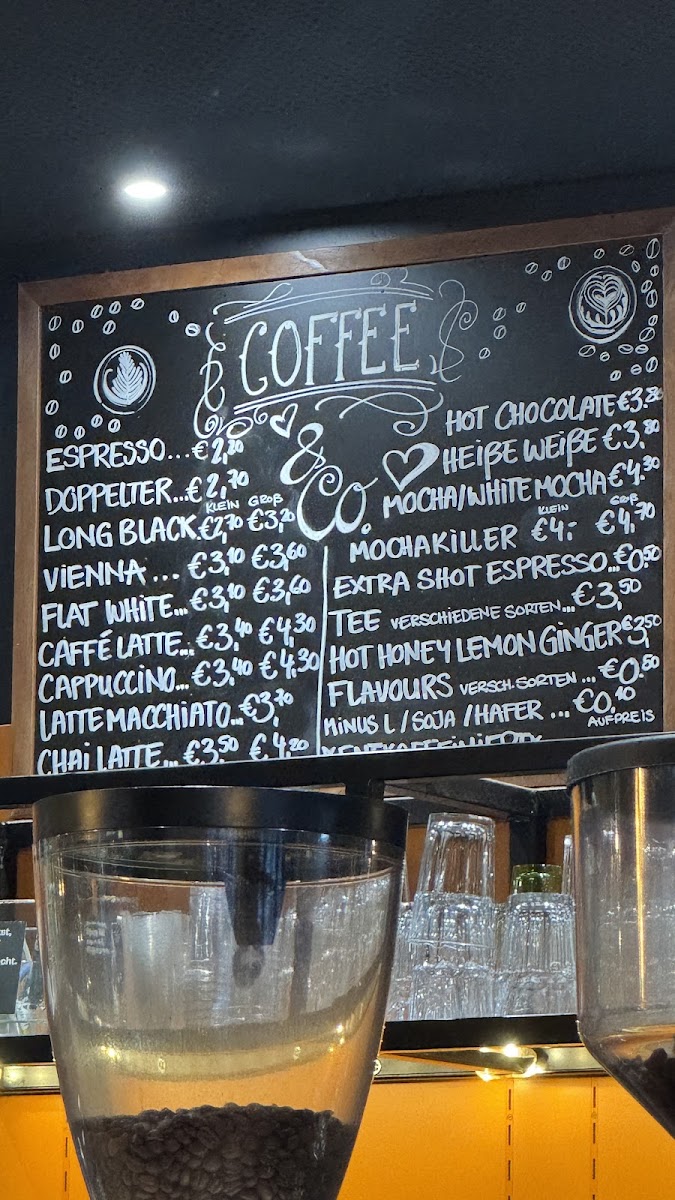 COFFEE
& Co.
ESPRESSO...€2,20
DOPPELTER...€2,70
KLEIN GROß
LONG BLACK.€2,70 €3,20
VIENNA... €3,10 €3,60
FLAT WHITE...€3,10 €3,60
CAFFÉ LATTE...€3,40 €4,30
CAPPUCCINO...€3,40 €4,30
LATTE MACCHIATO..€3,70
CHAI LATTE...€3,50 €4,20
HOT CHOCOLATE €3.80
HEIßE WEIßE €3,80
MOCHA/WHITE MOCHA €4,30
KLEIN GROß
MOCHAKILLER €4,- €4,70
EXTRA SHOT ESPRESSO...€0,50
TEE VERSCHIEDENE SORTEN...€3,50
HOT HONEY LEMON GINGER €3,50
FLAVOURS VERSCH. SORTEN ...€0,50
MINUS L / SOJA / HAFER ... €0,10
AUFPREIS